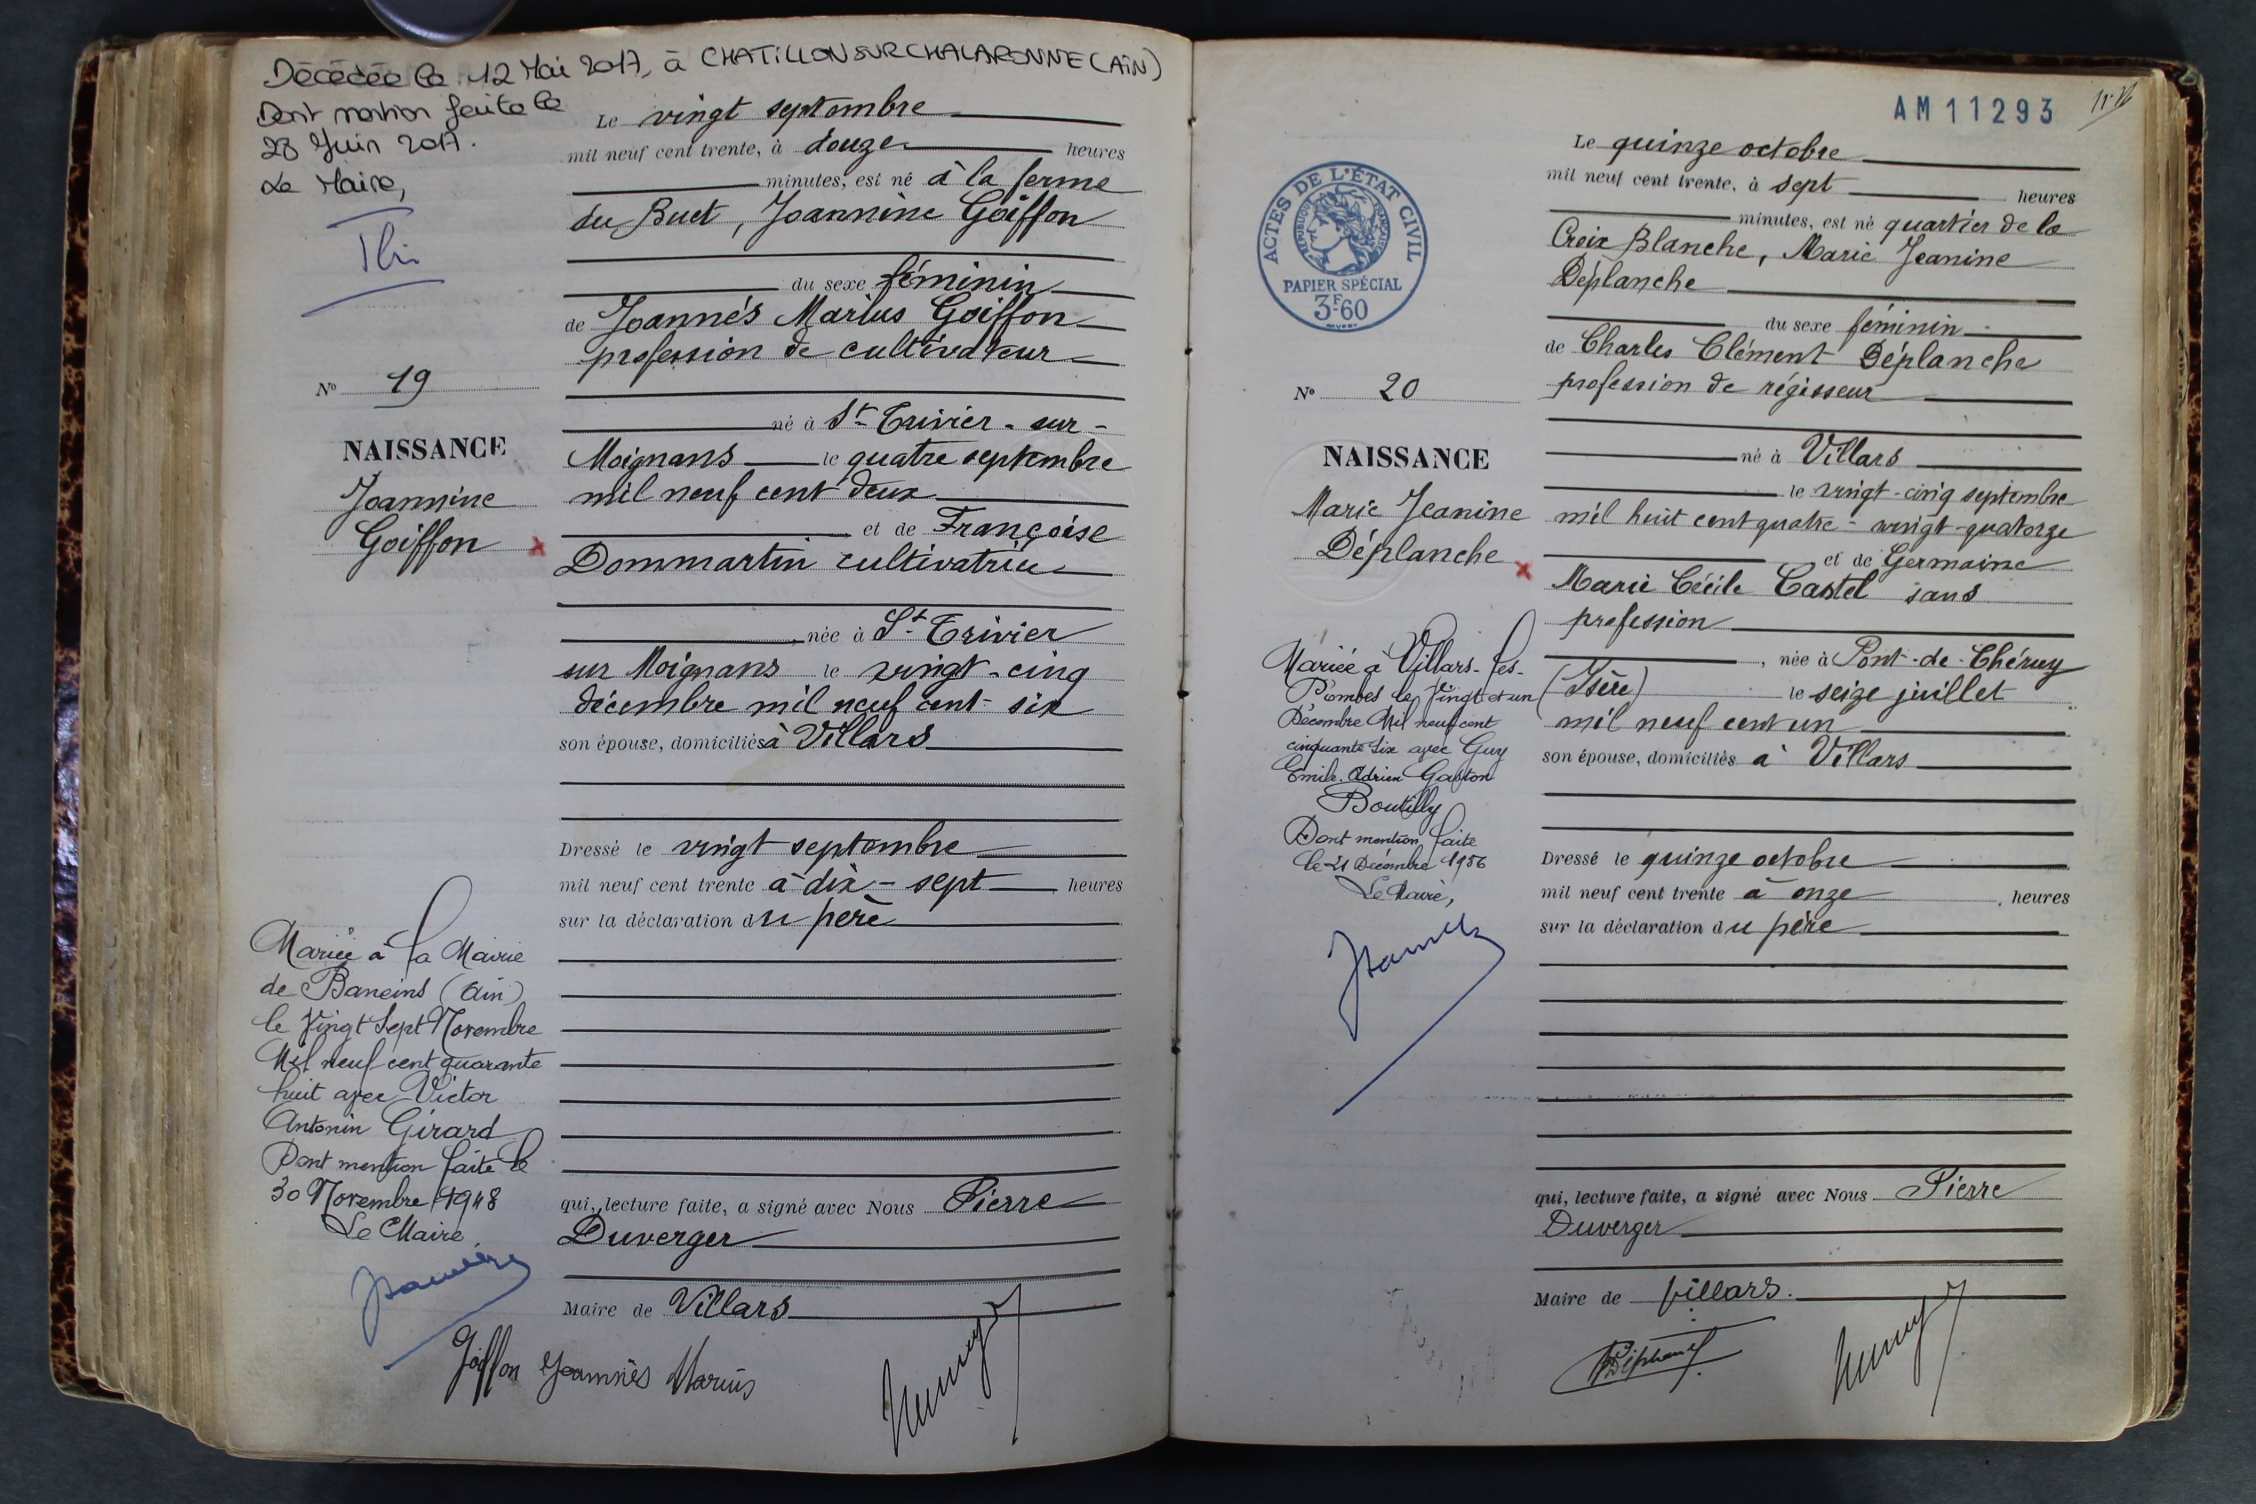 Décédée le 12 Mai 2017, à CHATILLON SUR CHALARONNE (AIN)
Dont mention faite le
28 Juin 2017.
Le Maire,
Le vingt septembre
mil neuf cent trente, à douze heures
minutes, est né à la ferme
du Buet, Joannine Goiffon
du sexe féminin
de Joannés Marius Goiffon
profession de cultivateur
né à St Trivier-sur-
Moignans le quatre septembre
mil neuf cent deux
et de Françoise
Dommartin cultivatrice
, née à St Trivier
sur Moignans le vingt-cinq
décembre mil neuf cent-six
son épouse, domiciliés à Villars
Dressé le vingt septembre
mil neuf cent trente à dix-sept heures
sur la déclaration du père
qui, lecture faite, a signé avec Nous Pierre
Duverger
Maire de Villars
Goiffon Joannès Marius
No 19
NAISSANCE
Joannine
Goiffon
Mariée à la Mairie
de Baneins (Ain)
le Vingt Sept Novembre
Mil neuf cent quarante
huit avec Victor
Antonin Girard
Dont mention faite le
30 Novembre 1948
Le Maire
AM11293
ACTES DE L'ÉTAT CIVIL
RÉPUBLIQUE FRANÇAISE
PAPIER SPÉCIAL
3F60
Le quinze octobre
mil neuf cent trente, à sept heures
minutes, est né quartier de la
Croix Blanche, Marie Jeanine
Déplanche
du sexe féminin
de Charles Clément Déplanche
profession de régisseur
né à Villars
le vingt-cinq septembre
mil huit cent quatre-vingt-quatorze
et de Germaine
Marie Cécile Castel sans
profession
, née à Pont-de-Chéruy
(Isère) le seize juillet
mil neuf cent un
son épouse, domiciliés à Villars
Dressé le quinze octobre
mil neuf cent trente à onze heures
sur la déclaration du père
qui, lecture faite, a signé avec Nous Pierre
Duverger
Maire de Villars.
No 20
NAISSANCE
Marie Jeanine
Déplanche
Mariée à Villars-les-
Dombes le Vingt et un
Décembre Mil neuf cent
cinquante six avec Guy
Emile Adrien Gaston
Boutilly
Dont mention faite
le 21 Décembre 1956
Le Maire,